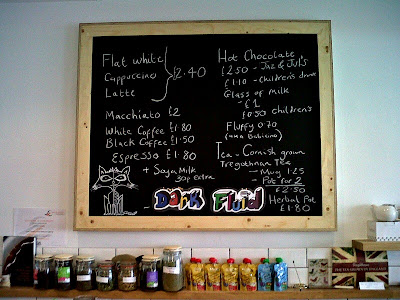 Flat white
Cappuccino
Latte
£2.40
Macchiato £2
White Coffee £1.80
Black Coffee £1.50
Espresso £1.80
+ Soya Milk
30p extra
Dark Fluid
Hot Chocolate
£2.50 - Jaz & Jul's
£1.10 - Children's
Glass of Milk
- £1
£0.50 children's
Fluffy 0.70
(AKA Babycino)
Tea - Cornish grown
Tregothnan Tea
- Mug 1.25
Pot for 2
£2.50
Herbal Pot
£1.80